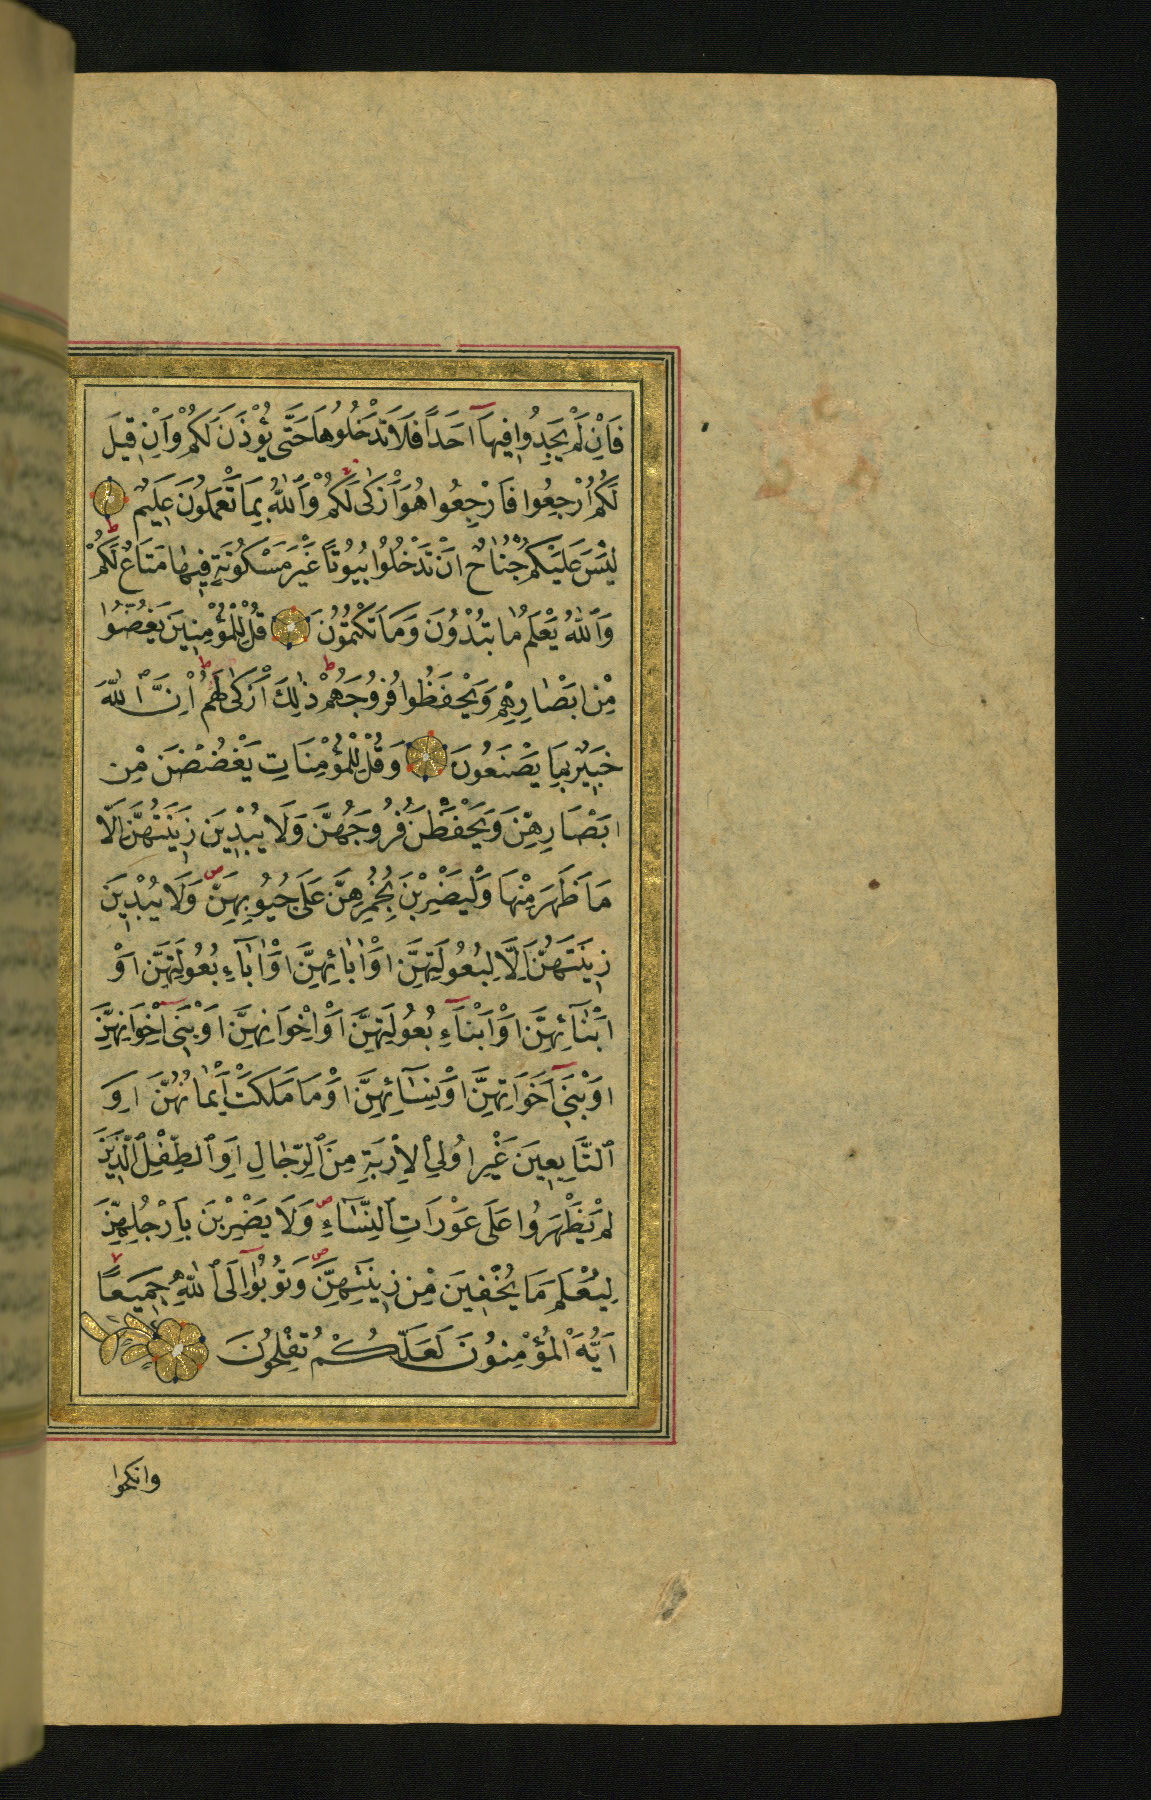 فَاِنْ لَمْ تَجِدُوا فِيهَآ اَحَدًا فَلَا تَدْخُلُوهَا حَتّٰى يُؤْذَنَ لَكُمْ وَاِنْ قِيلَ
لَكُمُ ارْجِعُوا فَارْجِعُوا هُوَ اَزْكٰى لَكُمْ وَاللّٰهُ بِمَا تَعْمَلُونَ عَلِيمٌ
لَيْسَ عَلَيْكُمْ جُنَاحٌ اَنْ تَدْخُلُوا بُيُوتًا غَيْرَ مَسْكُونَةٍ فِيهَا مَتَاعٌ لَكُمْ
وَاللّٰهُ يَعْلَمُ مَا تُبْدُونَ وَمَا تَكْتُمُونَ قُلْ لِلْمُؤْمِنِينَ يَغُضُّوا
مِنْ اَبْصَارِهِمْ وَيَحْفَظُوا فُرُوجَهُمْ ذٰلِكَ اَزْكٰى لَهُمْ اِنَّ اللّٰهَ
خَبِيرٌ بِمَا يَصْنَعُونَ وَقُلْ لِلْمُؤْمِنَاتِ يَغْضُضْنَ مِنْ
اَبْصَارِهِنَّ وَيَحْفَظْنَ فُرُوجَهُنَّ وَلَا يُبْدِينَ زِينَتَهُنَّ اِلَّا
مَا ظَهَرَ مِنْهَا وَلْيَضْرِبْنَ بِخُمُرِهِنَّ عَلٰى جُيُوبِهِنَّ وَلَا يُبْدِينَ
زِينَتَهُنَّ اِلَّا لِبُعُولَتِهِنَّ اَوْ اٰبَائِهِنَّ اَوْ اٰبَآءِ بُعُولَتِهِنَّ اَوْ
اَبْنَائِهِنَّ اَوْ اَبْنَآءِ بُعُولَتِهِنَّ اَوْ اِخْوَانِهِنَّ اَوْ بَنِىٓ اِخْوَانِهِنَّ
اَوْ بَنِىٓ اَخَوَاتِهِنَّ اَوْ نِسَآئِهِنَّ اَوْ مَا مَلَكَتْ اَيْمَانُهُنَّ اَوِ
التَّابِعِينَ غَيْرِ اُولِى الْاِرْبَةِ مِنَ الرِّجَالِ اَوِ الطِّفْلِ الَّذِينَ
لَمْ يَظْهَرُوا عَلٰى عَوْرَاتِ النِّسَآءِ وَلَا يَضْرِبْنَ بِاَرْجُلِهِنَّ
لِيُعْلَمَ مَا يُخْفِينَ مِنْ زِينَتِهِنَّ وَتُوبُوٓا اِلَى اللّٰهِ جَمِيعًا
اَيُّهَ الْمُؤْمِنُونَ لَعَلَّكُمْ تُفْلِحُونَ
وانكحوا